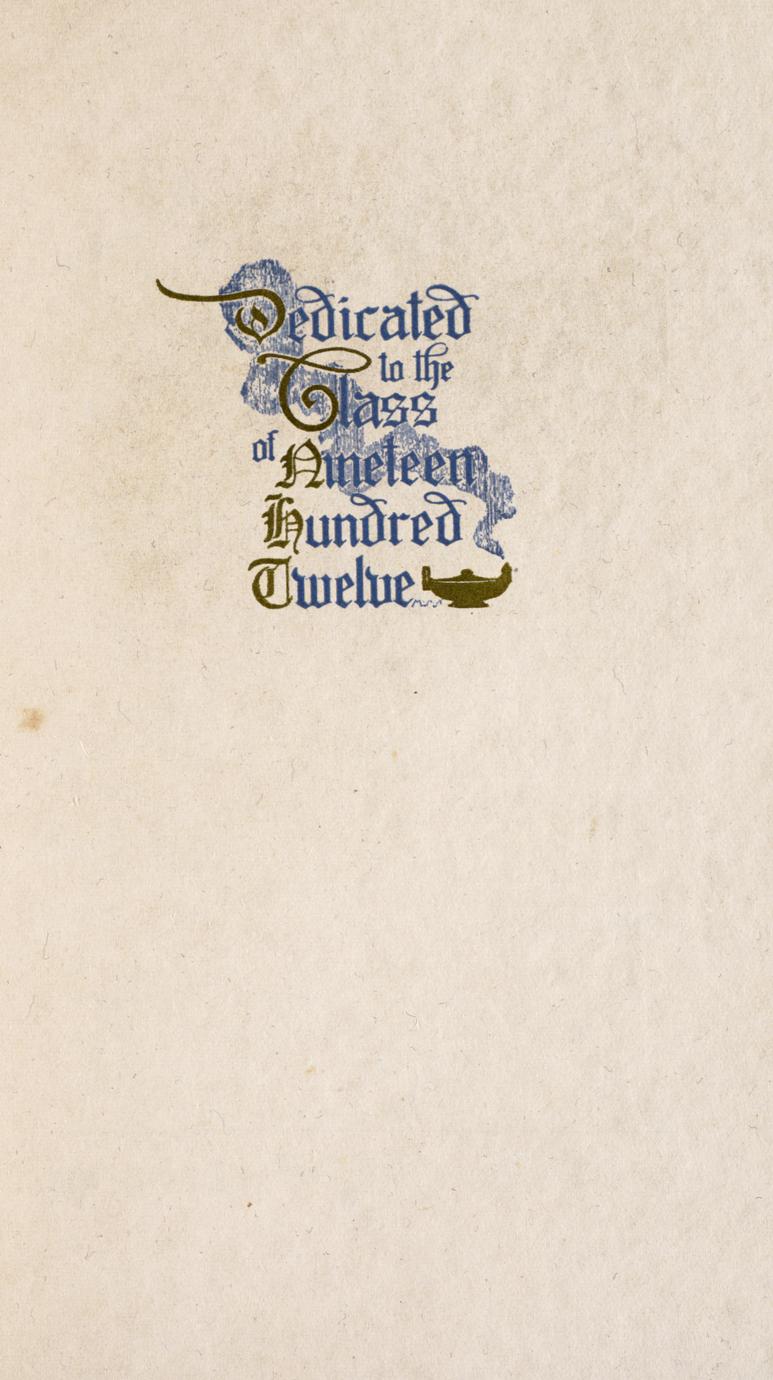 Dedicated
to the
Class
of Nineteen
Hundred
Twelve